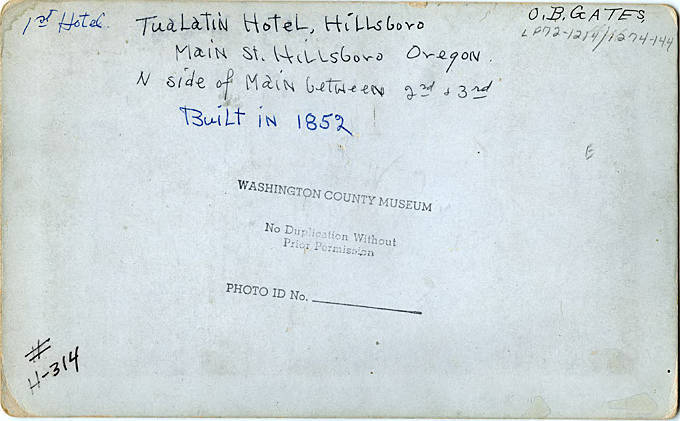 1st Hotel. Tualatin Hotel, Hillsboro
O.B. GATES,
LP72-1214/1274-144
Main St. Hillsboro Oregon.
N side of Main between 2nd & 3rd
Built in 1852
E
WASHINGTON COUNTY MUSEUM
No Duplication Without
Prior Permission
PHOTO ID No.
#
H-314